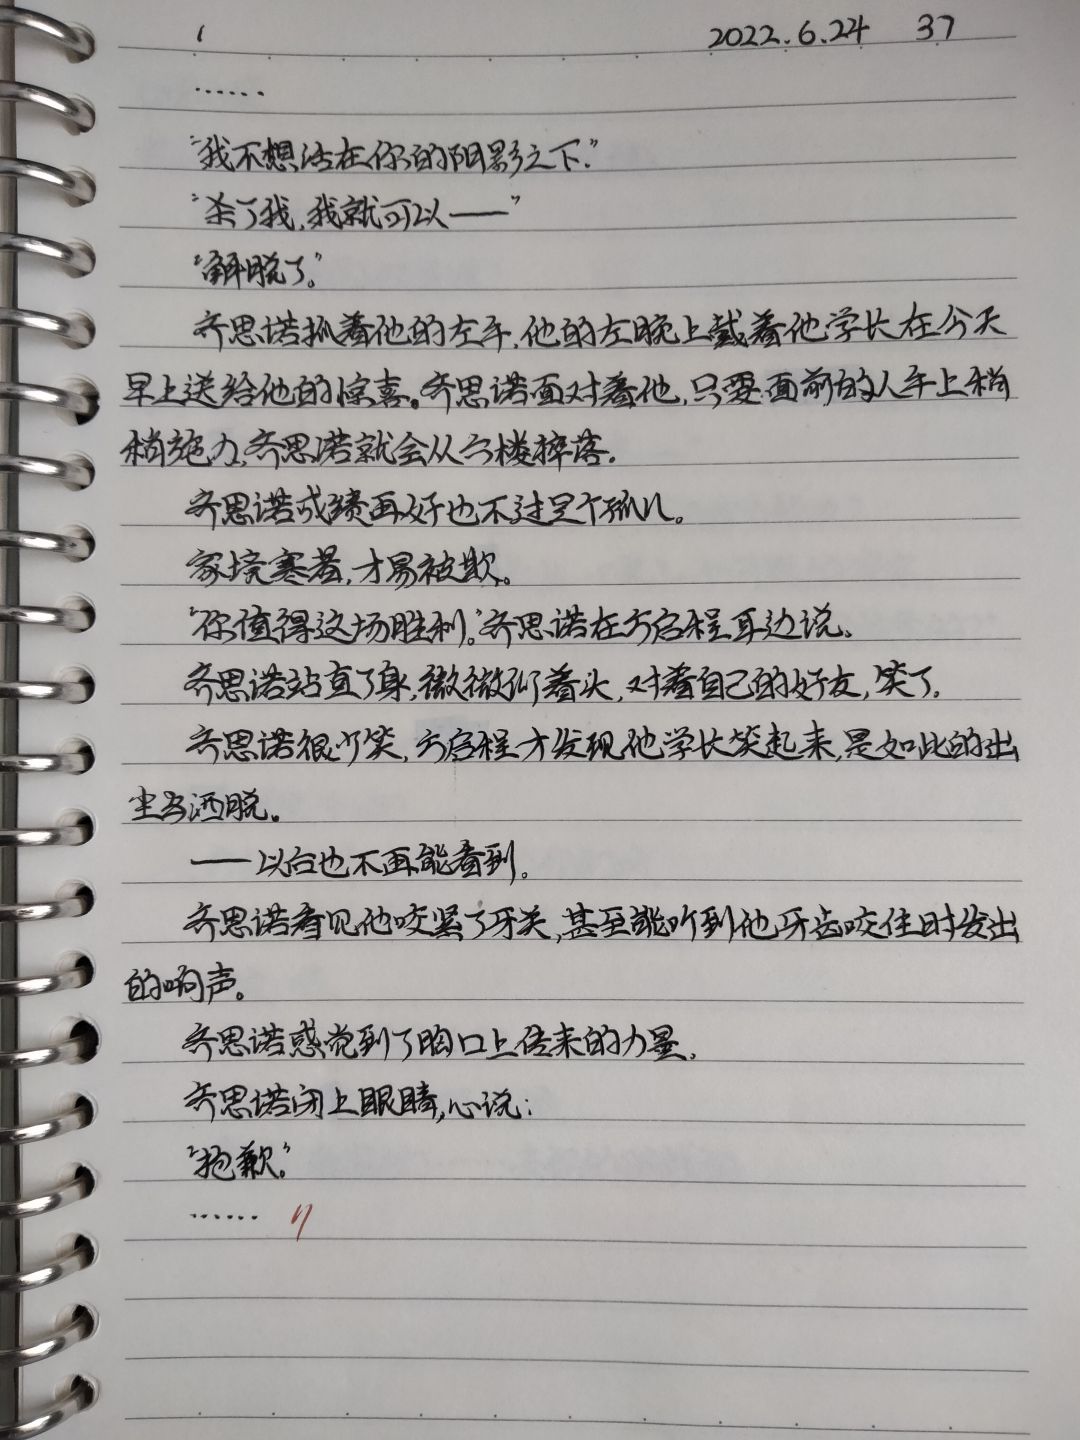 1 2022.6.24 37
……
“我不想活在你的阴影之下.”
“杀了我,我就可以——”
“解脱了.”
齐思诺抓着他的左手,他的左腕上戴着他学长在今天
早上送给他的惊喜。齐思诺面对着他,只要面前的人手上稍
稍施力,齐思诺就会从六楼摔落.
齐思诺成绩再好也不过是个孤儿。
家境寒着,才易被欺。
“你值得这场胜利.”齐思诺在方启程耳边说、
齐思诺站直了身,微微仰着头,对着自己的好友,笑了.
齐思诺很少笑,方启程才发现他学长笑起来,是如此的出
尘与洒脱。
——以后也不再能看到。
齐思诺看见他咬紧了牙关,甚至能听到他牙齿咬住时发出
的响声。
齐思诺感觉到了胸口上传来的力量、
齐思诺闭上眼睛,心说:
“抱歉.”
……